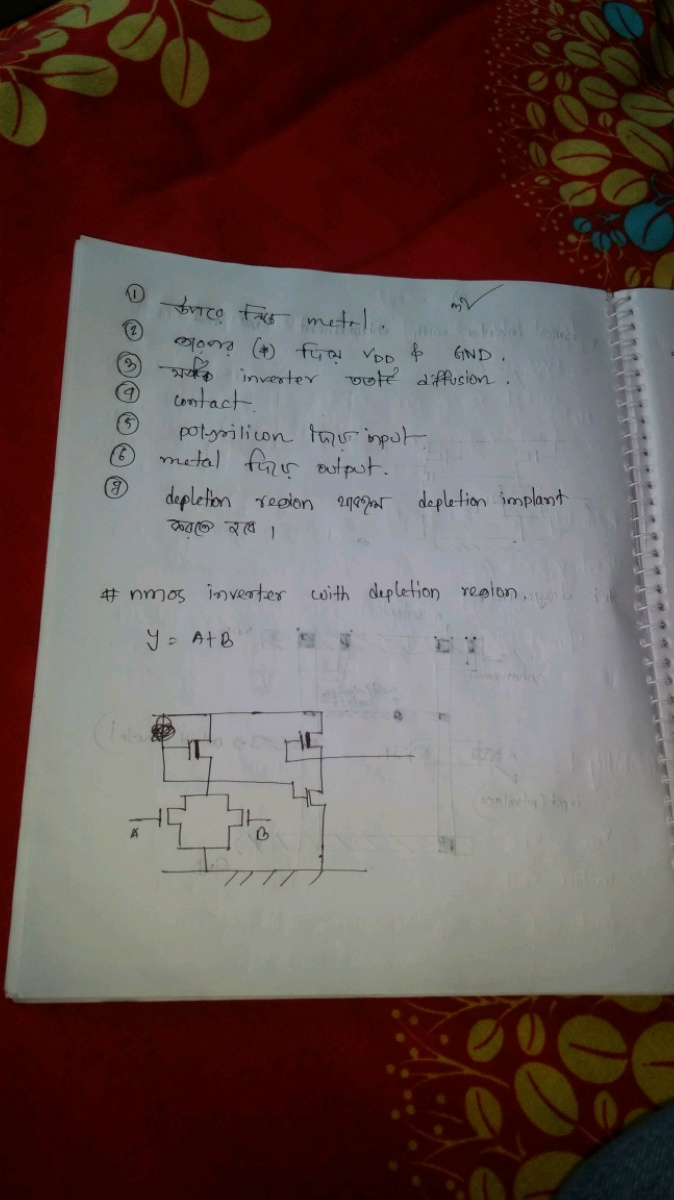 ① উপরে নিচে metal.
② তারপর (*) দিয়ে VDD & GND.
③ inverter ততটি diffusion.
④ contact.
⑤ polysilicon দিয়ে input.
⑥ metal দিয়ে output.
⑦ depletion region থাকলে depletion implant
করতে হবে।
# nmos inverter with depletion region.
y = A+B
A B